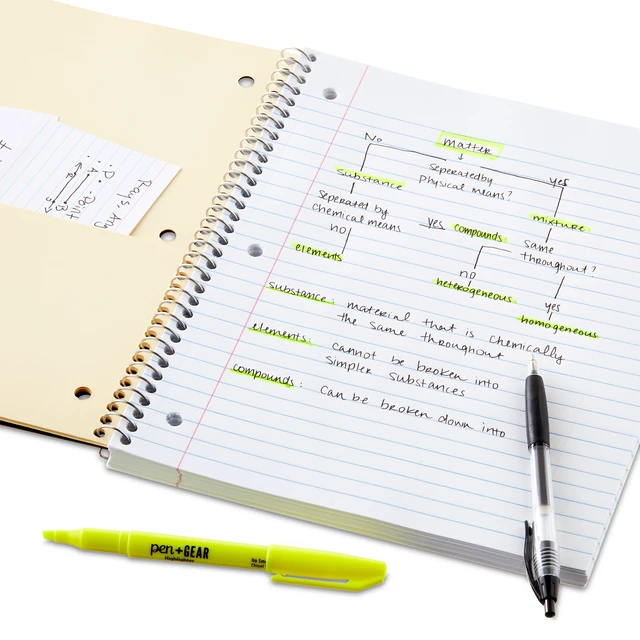 matter
No
Seperated by
physical means?
yes
Substance
mixture
Seperated by
chemical means
yes
compounds
same
throughout?
no
elements
no
heterogeneous
yes
homogeneous
Substance: material that is chemically
the same throughout
elements: cannot be broken into
simpler substances
compounds: can be broken down into
pen+GEAR
Highlighter
Rays, Any